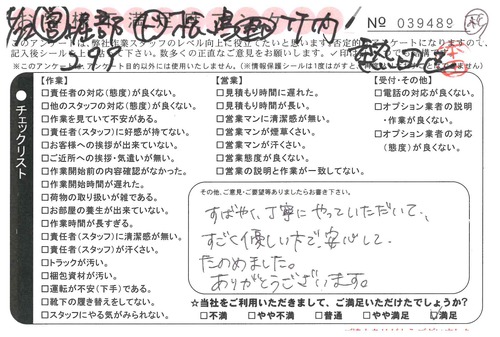 No 039489
このアンケートは、弊社従業スタッフのレベル向上に役立てたいと思います!否定的
記入後シールを上
で、数多くの正直なご意見をお願い致します。
※このアンケートは、アンケート目的以外には使用いたしません。(※情報保護シールは1度はがすと、
チェックリスト
【作業】
□責任者の対応(態度)が良くない。
□他のスタッフの対応(態度)が良くない。
□作業を見ていて不安がある。
□責任者(スタッフ)に好感が持てない。
□お客様への挨拶が出来ていない。
□ご近所への挨拶・気遣いが無い。
□作業開始前の内容確認がなかった。
□作業開始時間が遅れた。
□荷物の取り扱いが雑である。
□お部屋の養生が出来ていない。
□作業時間が長すぎる。
□責任者(スタッフ)に清潔感が無い。
□責任者(スタッフ)が汗くさい。
□トラックが汚い。
□梱包資材が汚い。
□運転が不安(下手)である。
□靴下の履き替えをしてない。
□スタッフにやる気がみられない。
【営業】
□見積もり時間に遅れた。
□見積もり時間が長い。
□営業マンに清潔感が無い。
□営業マンが煙草くさい。
□営業マンが汗くさい。
□営業態度が良くない。
□営業の説明と作業が一致してない。
【受付・その他】
□電話の対応が良くない。
□オプション業者の説明
・作業が良くない。
□オプション業者の対応
(態度)が良くない。
その他、ご意見・ご要望等ありましたらお書き下さい。
すばやく、丁寧にやっていただいて、
すごく優しい方で、安心して
たのめました。
ありがとうございます。
☆当社をご利用いただきまして、ご満足いただけたでしょうか?
□不満 □やや不満 □普通 □やや満足 ☑満足